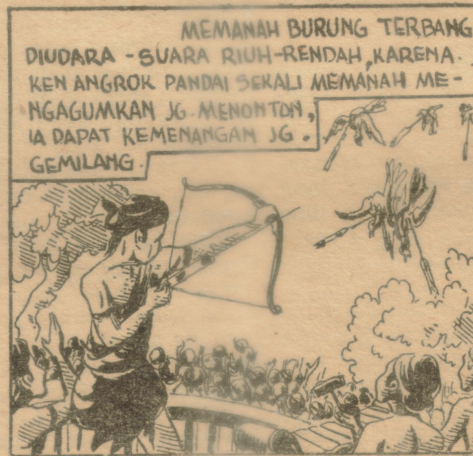 MEMANAH BURUNG TERBANG
DIUDARA - SUARA RIUH-RENDAH, KARENA.
KEN ANGROK PANDAI SEKALI MEMANAH ME-
NGAGUMKAN JG. MENONTON,
IA DAPAT KEMENANGAN JG.
GEMILANG.